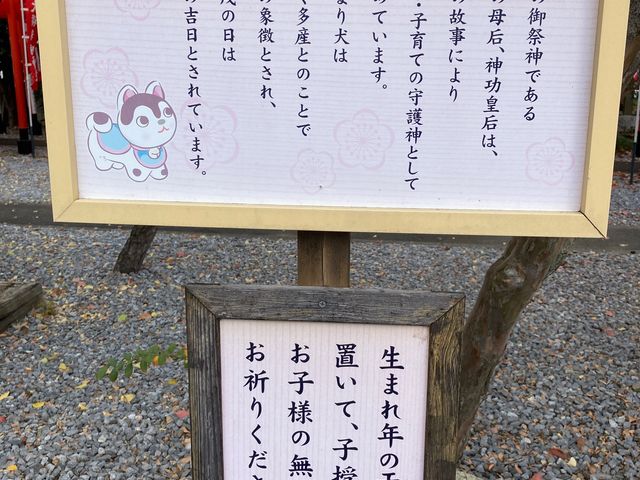 の御祭神である
の母后、神功皇后は、
の故事により
・子育ての守護神として
めています。
より犬は
多産とのことで
の象徴とされ、
戌の日は
の吉日とされています。
生まれ年の
置いて、子授
お子様の無
お祈りくださ